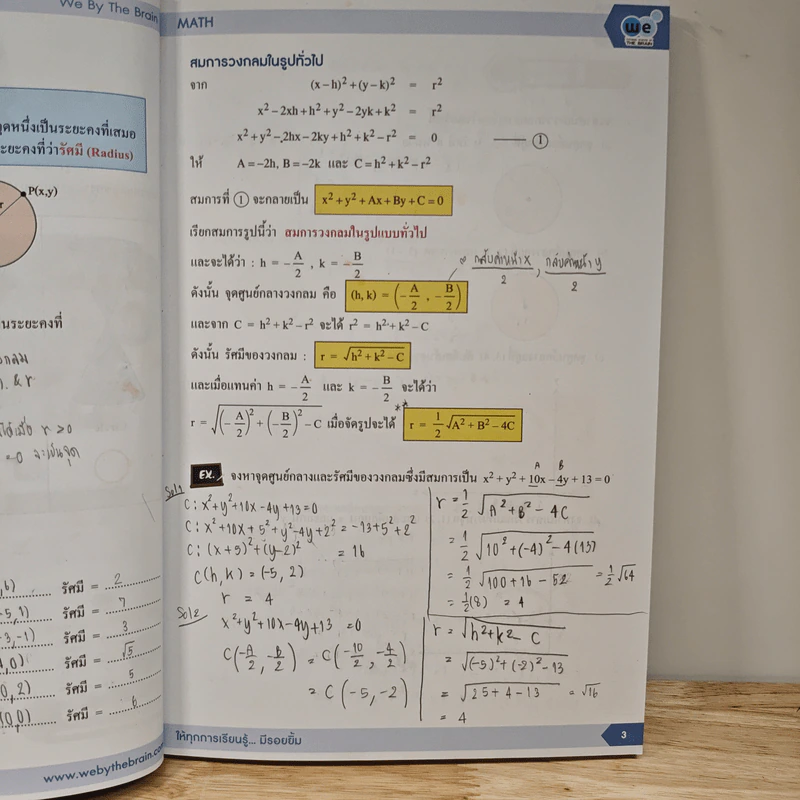 We By The Brain
MATH
we
THE BRAIN
จุดหนึ่งเป็นระยะคงที่เสมอ
ระยะคงที่ว่ารัศมี (Radius)
P(x,y)
r
ป็นระยะคงที่
. & r
เมื่อ r > 0
= 0 จะเป็นจุด
,6) รัศมี = 2
-5, 1) รัศมี = 7
-3, -1) รัศมี = 3
,0) รัศมี = √5
0, 2) รัศมี = 5
(0,0) รัศมี = 6
www.webythebrain.com
สมการวงกลมในรูปทั่วไป
จาก (x−h)² + (y−k)² = r²
x² − 2xh + h² + y² − 2yk + k² = r²
x² + y² − 2hx − 2ky + h² + k² − r² = 0 ①
ให้ A = −2h, B = −2k และ C = h² + k² − r²
สมการที่ ① จะกลายเป็น x² + y² + Ax + By + C = 0
เรียกสมการรูปนี้ว่า สมการวงกลมในรูปแบบทั่วไป
และจะได้ว่า : h = −A/2 , k = −B/2
กลับค่าหน้า x/2 , กลับค่าหน้า y/2
ดังนั้น จุดศูนย์กลางวงกลม คือ (h, k) = (−A/2 , −B/2)
และจาก C = h² + k² − r² จะได้ r² = h² + k² − C
ดังนั้น รัศมีของวงกลม : r = √(h² + k² − C)
และเมื่อแทนค่า h = −A/2 และ k = −B/2 จะได้ว่า
r = √((−A/2)² + (−B/2)² − C) เมื่อจัดรูปจะได้ ** r = 1/2 √(A² + B² − 4C)
A B
EX. จงหาจุดศูนย์กลางและรัศมีของวงกลมซึ่งมีสมการเป็น x² + y² + 10x − 4y + 13 = 0
Sol1
C: x² + y² + 10x − 4y + 13 = 0
C: x² + 10x + 5² + y² − 4y + 2² = −13 + 5² + 2²
C: (x + 5)² + (y − 2)² = 16
C(h, k) = (−5, 2)
r = 4
Sol2
x² + y² + 10x − 4y + 13 = 0
C(−A/2, −B/2) = C(−10/2, −4/2)
= C(−5, −2)
r = 1/2 √(A² + B² − 4C)
= 1/2 √(10² + (−4)² − 4(13)
= 1/2 √(100 + 16 − 52) = 1/2 √64
= 1/2 (8) = 4
r = √(h² + k² C)
= √((−5)² + (−2)² − 13)
= √(25 + 4 − 13) = √16
= 4
ให้ทุกการเรียนรู้... มีรอยยิ้ม
3